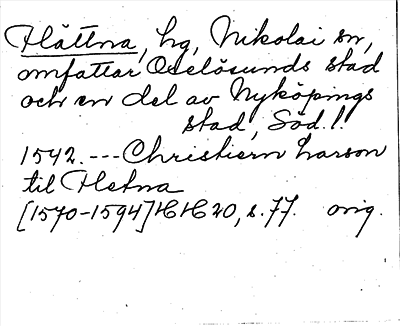 Hättna, hg, Nikolai sn,
omfattar Oxelösunds stad
och en del av Nyköpings
stad, Söd. l.
1542.---Christiern Larson
til Hetna
[1570-1594] HH 20, s. 77. orig.